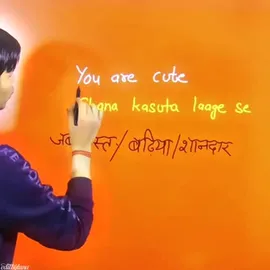 You are cute
hana kasuta laage se
/ बढ़िया/शानदार